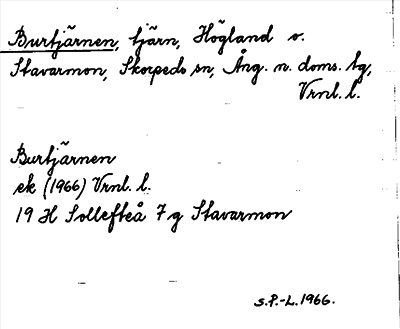 Burtjärnen, tjärn, Högland o.
Stavarmon, Skorpeds sn, Ång. n. doms. tg,
Vrnl. l.
Burtjärnen
ek (1966) Vrnl. l.
19 H Sollefteå 7 g Stavarmon
S.P.-L. 1966.